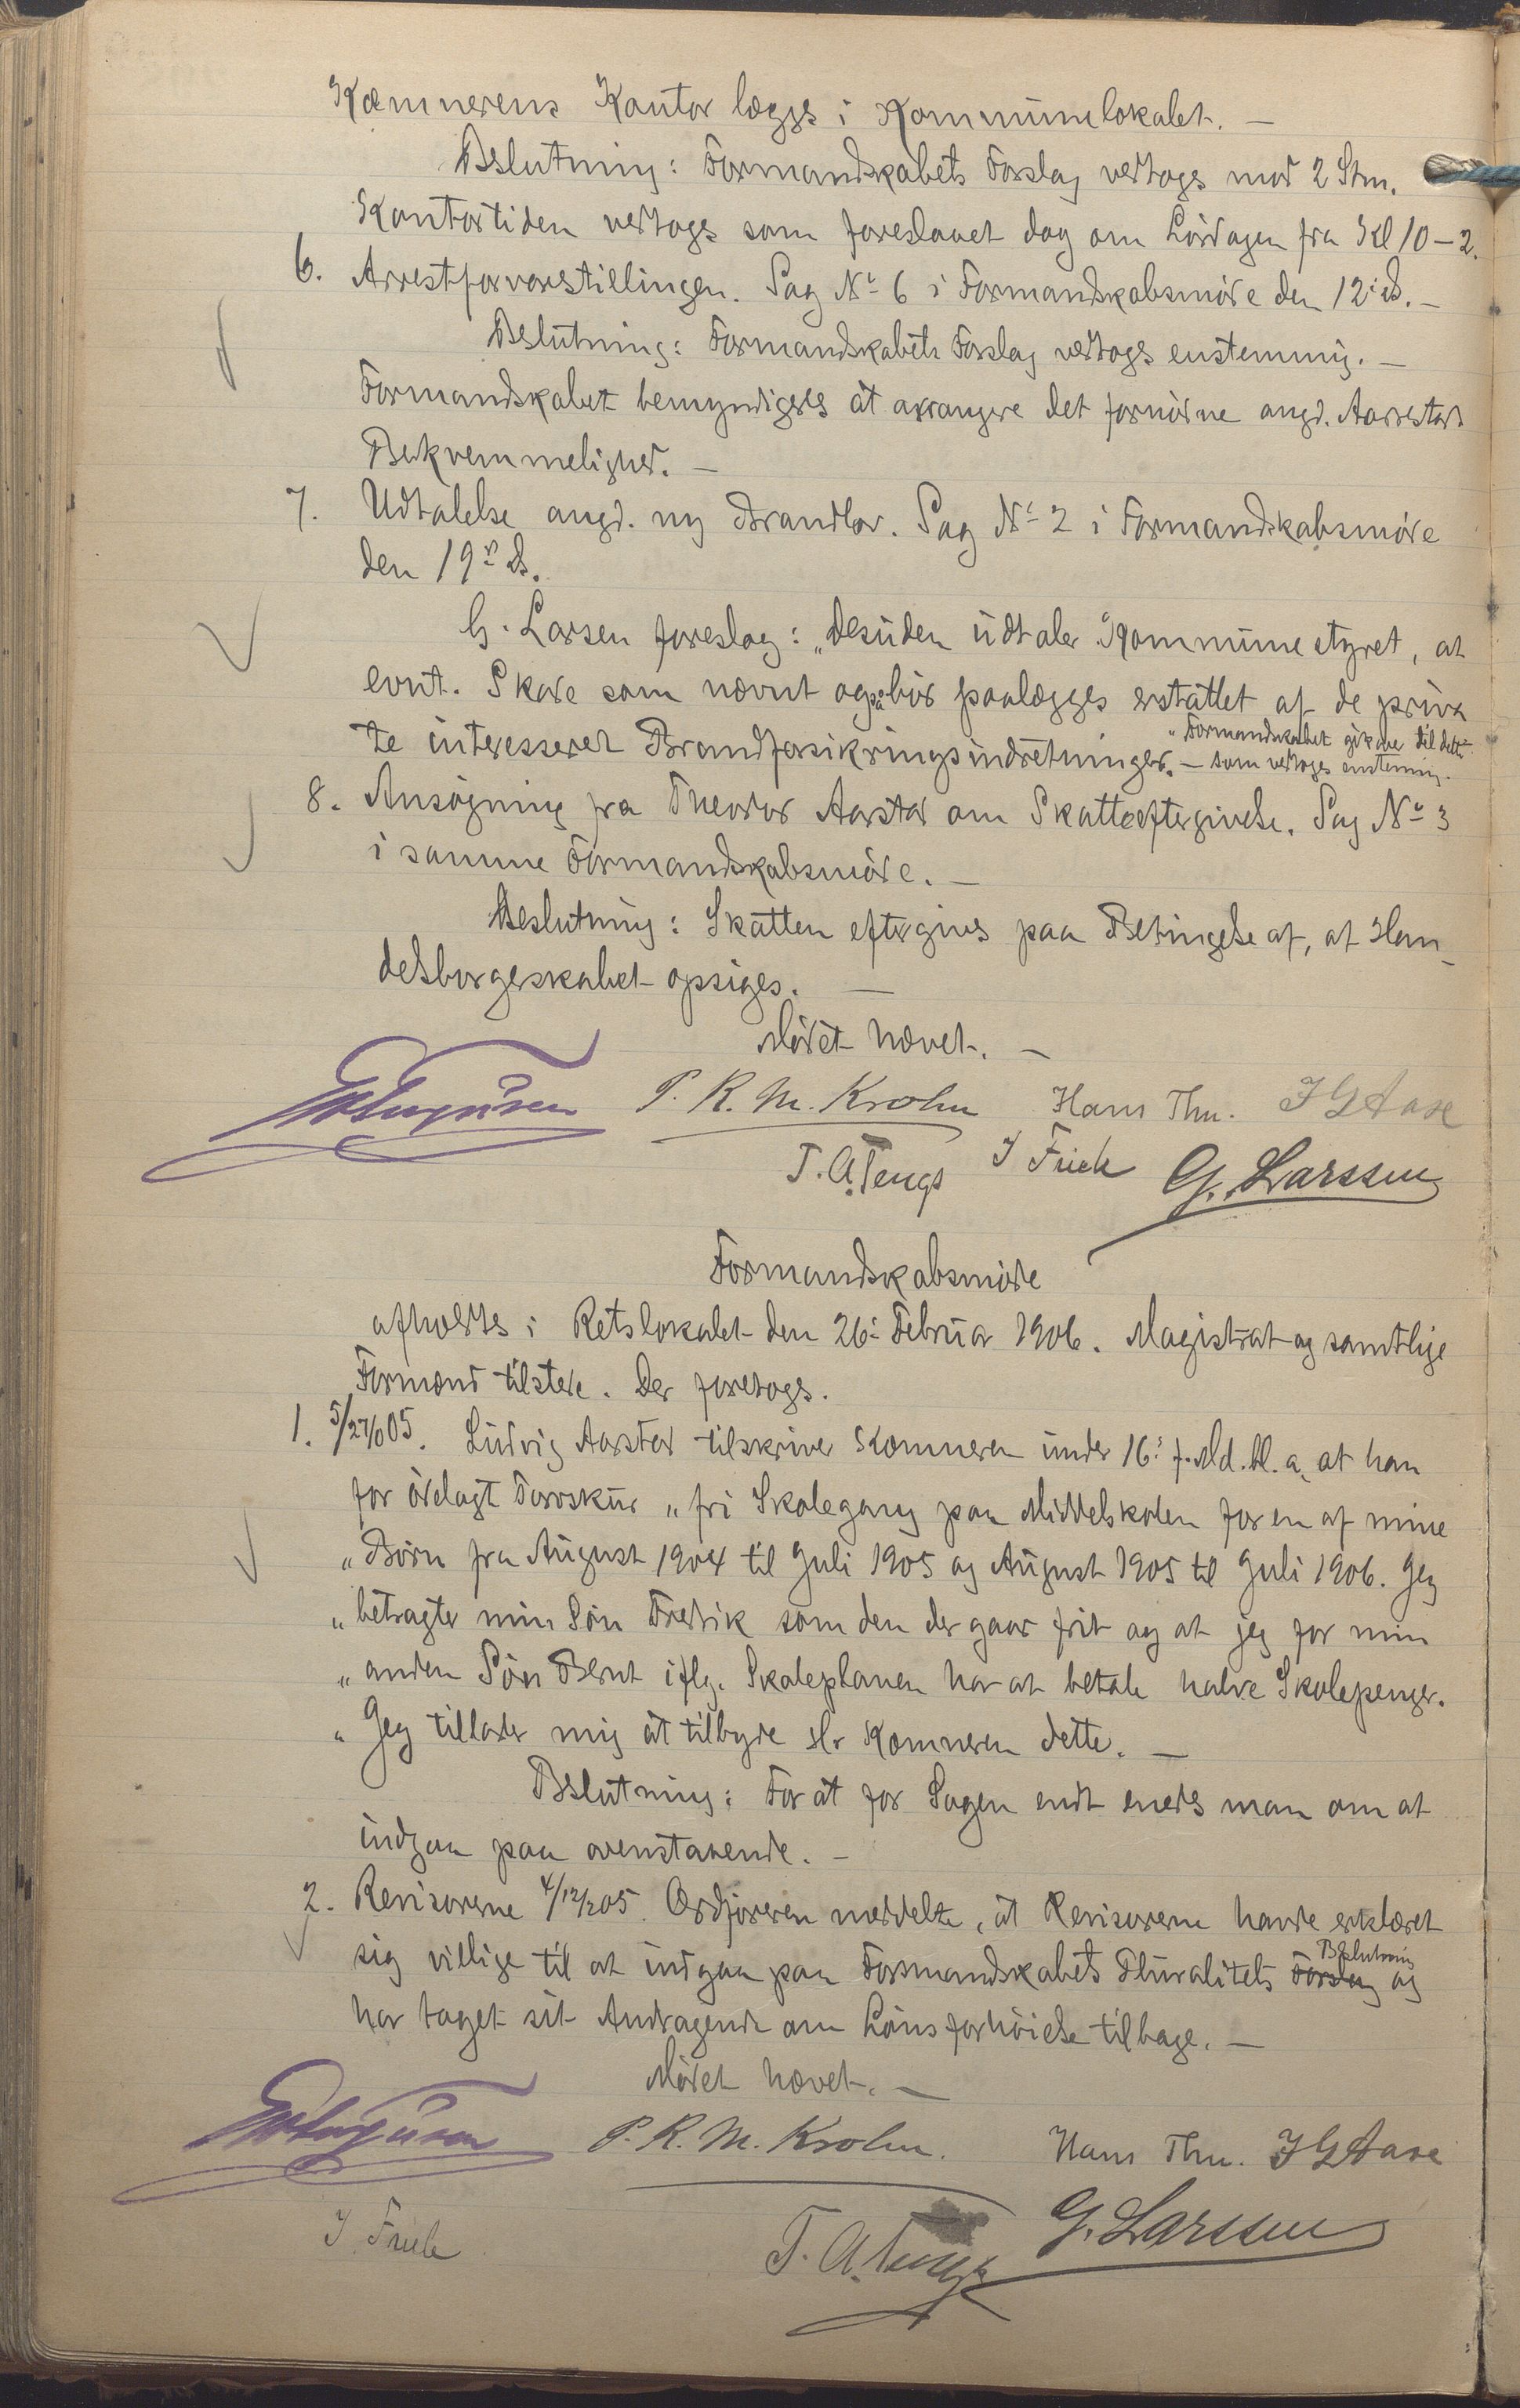 Kæmnerens Kontor lægges i Kommunelokalet. —
Beslutning: Formandskabets Forslag vedtoges mod 2 Stm.
Kontortiden vedtoges som foreslaaet dog om Lørdagen fra Kl 10-2.
6. Arrestforvarstillingen. Sag No 6 i Formandskabsmøde den 12' ds. —
Beslutning: Formandskabets Forslag vedtoges enstemmig. —
Formandskabet bemyndiges at arrangere det fornødne angd.
Bekvemmelighed. —
7. Udtalelse angd. ny Brandlov. Sag No 2 i Formandskabsmøde
den 19de ds.
G. Larsen foreslog: „Desuden udtaler Kommunestyret, at
evnt. Skade som nævnt også bør paalægges erstattet af de priva
te interesserer Brandforsikringsindretninger. —
" Formandskabet gik over til dette
som vedtoges enstemmig.
8. Ansøgning fra Theodor Aarstad om Skatteeftergivelse. Sag No 3
i samme Formandskabsmøde. —
Beslutning: Skatten eftergives paa Betingelse af, at Han-
delsborgerskabet opsiges. —
Mødet hævet. —
P. R. M. Krohn Hans Thu. J G Aase
T. A. Tengs J Friele G. Larssen
Formandskabsmøde
afholdtes i Retslokalet den 26' Februar 1906. Magistrat og samtlige
Formænd tilstede. Der foretoges.
1. 5/27/10 05. Ludvig Aarstad tilskriver Kæmneren under 16' f. Md. bl. a. at han
for ødelagt Torvskur „fri Skolegang paa Middelskolen for en af mine
„Børn fra August 1904 til Juli 1905 og August 1905 til Juli 1906. Jeg
„betragter min Søn Fredrik som den der gaar frit og at jeg for min
„anden Søn Bernt iflg. Skoleplanen har at betale halve Skolepenger.
„Jeg tillader mig at tilbyde Hr Kæmneren dette. —
Beslutning: For at faa Sagen endt enedes man om at
indgaa paa ovenstaaende. —
2. Revisorerne 4/12/2 05. Ordføreren meddelte, at Revisorerne havde erklæret
sig villige til at indgaa paa Formandskabets Pluralitets Forslag Beslutning og
har taget sit Andragende om Lønsforhøielse tilbage. —
Mødet hævet. —
P. R. M. Krohn. Hans Thu. J G Aase
J Friele T. A. Tengs G. Larssen